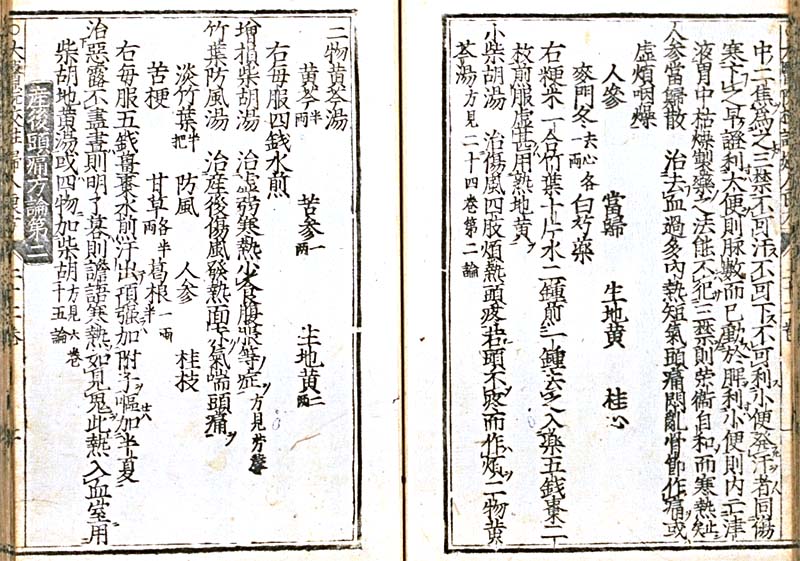 中二焦爲之三禁不可汗不可下不可利小便發汗者同傷
寒下之早證利大便則脉數而已動於脾利小便則內亡津
液胃中枯燥製藥之法能不犯三禁則榮衛自和而寒熱止
人參當歸散 治去血過多內熱短氣頭痛悶亂骨節作痛或
虛煩咽燥
人參 當歸 生地黃 桂心
麥門冬去心各一兩 白芍藥
右粳米一合竹葉十片水二鍾煎一鍾去之入藥五錢棗二
枚煎服虛甚用熟地黃
小柴胡湯 治傷風四肢煩熱頭疼若頭不疼而作煩二物黃
芩湯方見二十四卷第二論
二物黃芩湯
黃芩半兩 苦參一兩 生地黃二兩
右每服四錢水煎
增損柴胡湯 治虛弱寒熱少食腹脹等症方見勞
竹葉防風湯 治產後傷風發熱面赤氣喘頭痛
淡竹葉半把 防風 人參 桂枝
苦梗 甘草各半兩 葛根一兩半
右每服五錢薑棗水煎汗出項強加附子嘔加半夏
治惡露不盡晝則明了暮則譫語寒熱如見鬼此熱入血室用
柴胡地黃湯或四物加柴胡方見六卷十五論
產後頭痛方論第二